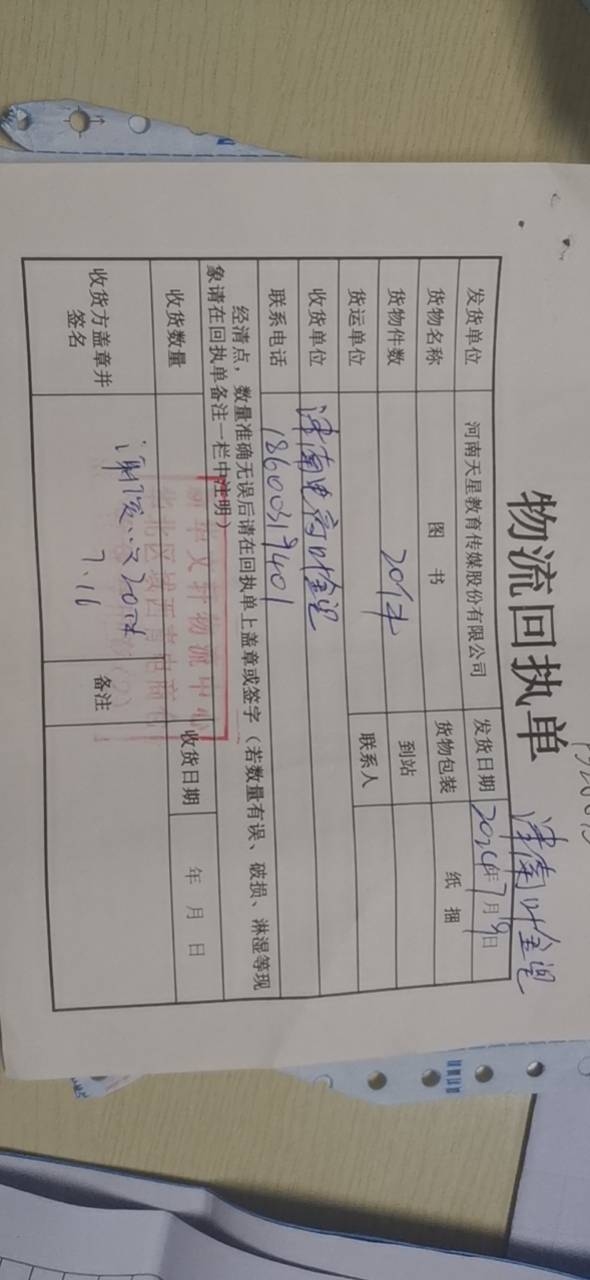 物流回执单
津南叶金遥
发货单位 河南天星教育传媒股份有限公司 发货日期 2024年7月9日
货物名称 图书 货物包装 纸捆
货物件数 20件 到站
货运单位 联系人
收货单位
联系电话 18600317401
经清点，数量准确无误后请在回执单上盖章或签字（若数量有误、破损、淋湿等现
象请在回执单备注一栏中注明）
收货数量 收货日期 年 月 日
收货方盖章并
签名
备注
7.16
新华文轩物流中心